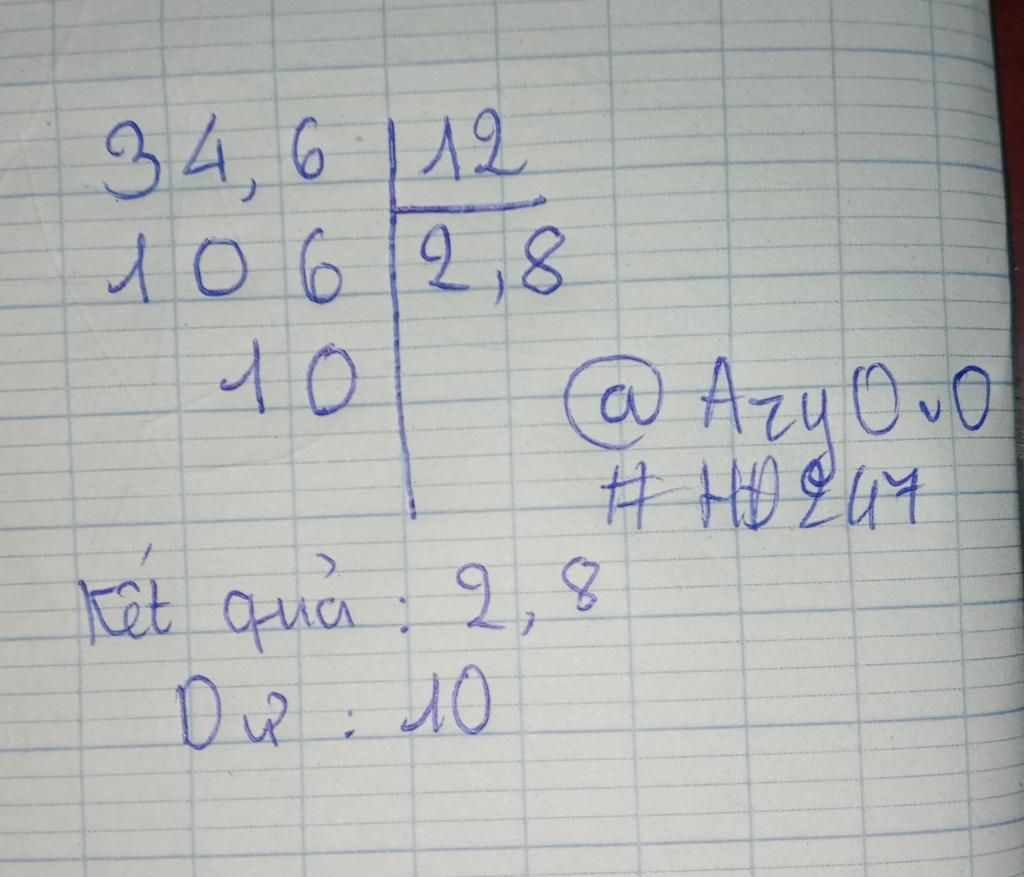 34,6 12
106 2,8
10
@ Azy OvO
# HD247
Kết quả : 2,8
Dư : 10